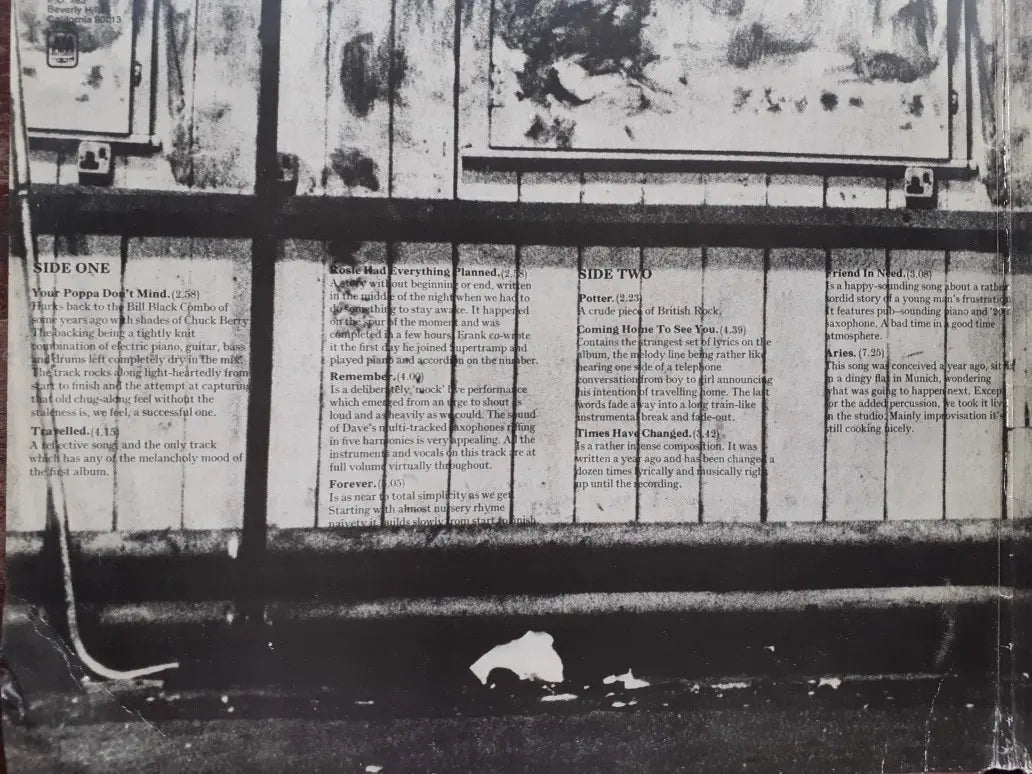 Beverly Hills
California 90213
A&M
SIDE ONE
Your Poppa Don't Mind.(2.58)
Harks back to the Bill Black Combo of
some years ago with shades of Chuck Berry.
The backing being a tightly knit
combination of electric piano, guitar, bass
and drums left completely dry in the mix.
The track rocks along light-heartedly from
start to finish and the attempt at capturing
that old chug-along feel without the
staleness is, we feel, a successful one.
Travelled.(4.15)
A reflective song and the only track
which has any of the melancholy mood of
the first album.
Rosie Had Everything Planned.(2.58)
A story without beginning or end, written
in the middle of the night when we had to
do something to stay awake. It happened
on the spur of the moment and was
completed in a few hours. Frank co-wrote
it the first day he joined Supertramp and
played piano and accordion on the number.
Remember.(4.00)
Is a deliberately 'mock' live performance
which emerged from an urge to shout as
loud and as heavily as we could. The sound
of Dave's multi-tracked saxophones riffing
in five harmonies is very appealing. All the
instruments and vocals on this track are at
full volume virtually throughout.
Forever.(5.05)
Is as near to total simplicity as we get.
Starting with almost nursery rhyme
naivety it builds slowly from start to finish
SIDE TWO
Potter.(2.23)
A crude piece of British Rock.
Coming Home To See You.(4.39)
Contains the strangest set of lyrics on the
album, the melody line being rather like
hearing one side of a telephone
conversation from boy to girl announcing
his intention of travelling home. The last
words fade away into a long train-like
instrumental break and fade-out.
Times Have Changed.(3.42)
Is a rather intense composition. It was
written a year ago and has been changed a
dozen times lyrically and musically right
up until the recording.
Friend In Need.(3.08)
Is a happy-sounding song about a rather
sordid story of a young man's frustration
It features pub-sounding piano and '20's
saxophone. A bad time in a good time
atmosphere.
Aries.(7.25)
This song was conceived a year ago, sitting
in a dingy flat in Munich, wondering
what was going to happen next. Except
for the added percussion, we took it live
in the studio. Mainly improvisation it's
still cooking nicely.